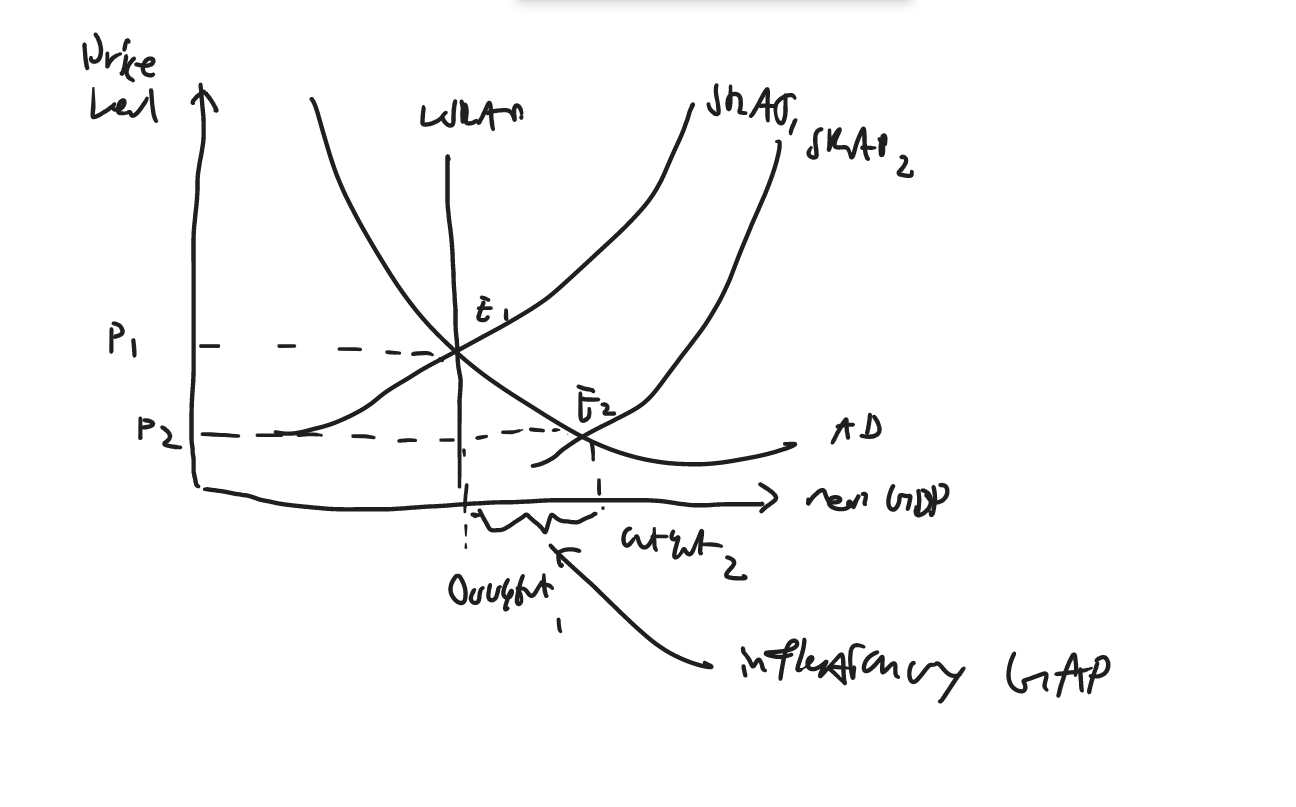 Price
Level
LSRAP
SRAS₁
SRAP₂
E₁
P₁
E₂
P₂
AD
real GDP
output₂
Output₁
inflationary GAP